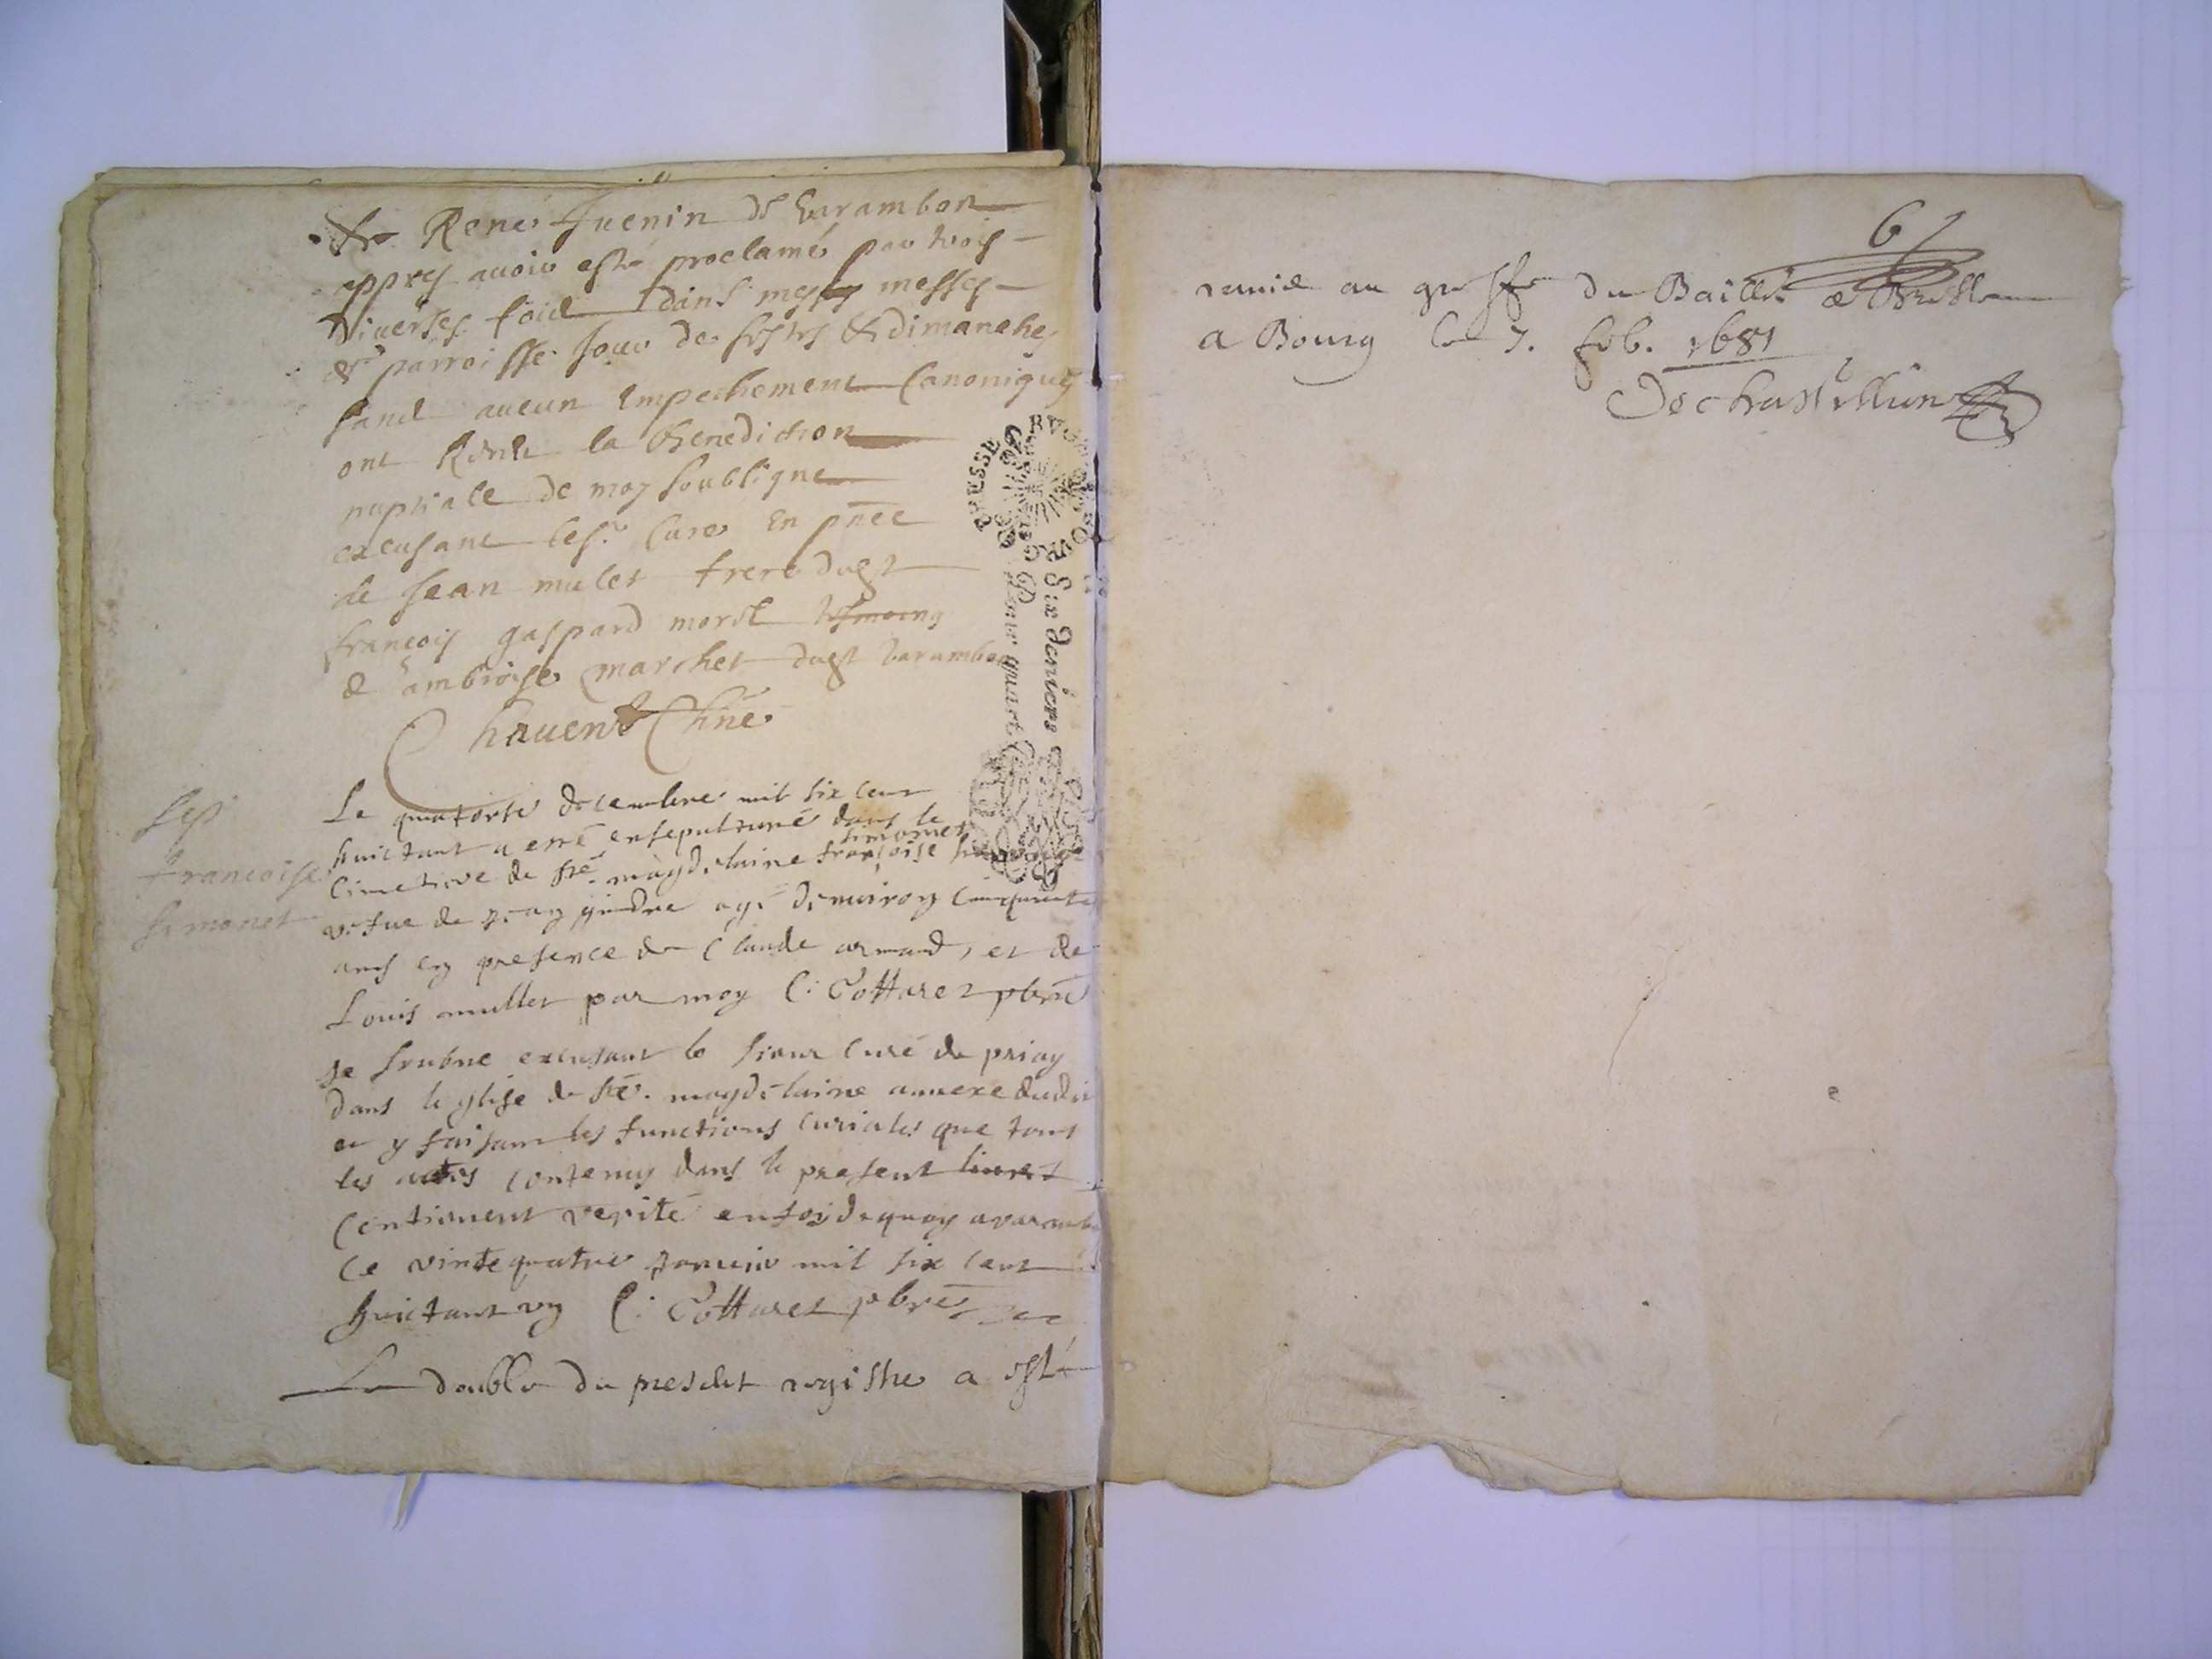 & René Juenin de Varambon
appres avoir esté proclamé par trois
diverses fois dans mes messes
de parroisse jour de festes & dimanche
sand aucun empechement canonique
ont la benediction
nuptiale de moy soubsigne
excusant les.r curé en pn̄ce
de jean mulet frere dugt
françois gaspard morel tesmoing
& ambroise marchet dugt varambon
Chauent
Sep
francoise
simonet
Le quatorse decembre mil six cent
huictant a etté ensepulturé dans le
simonet
cimetiere de ste. magdelaine françoise
vefue de jean gindre agé denuiron cinquante
ans en presence de Claude armand, et de
Louis mullet par moy C: Cottarez pbr̄e
je soubne excusant le sieur curé de priay
dans leglise de ste. magdelaine annexe dudi
et y faisant les functions curiales que tout
les actes contenus dans le present livret
contienent verité en foy de quoy a varamb
ce vintequatre janvier mil six cent
huictant un C: Cottarez pbr̄e
Le double du present registre a esté
BRESSE
Six deniers
Pour quart
6
remis au greffe du Bailli. de Bresse
a Bourg le 7. feb. 1681